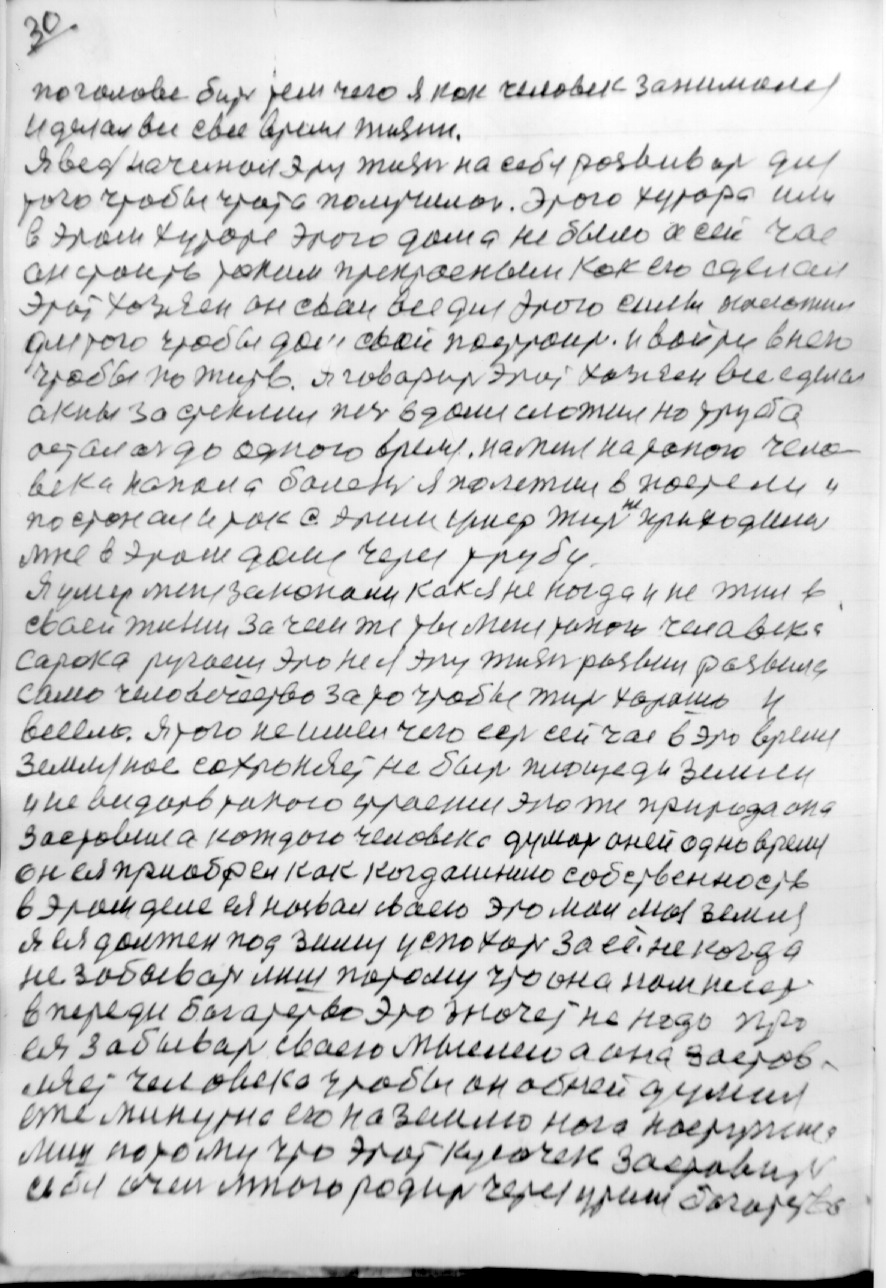 30
поголове бить тем чего я как человек занимался
и делал все свое время жизни.
Я вед начинал эту жизнь на себя розвивать для
того чтобы чтота получилось. Этого хутора или
в этом хуторе этого дома не было а сей час
он строить таким прекрасеным как его сделал
этот хозяен он сваи все для этого силы положил
для того чтобы дом свой построить. и войти в него
чтобы пожить. Я говарить этот хозяен все сделал
акны застеклил печ в доме сложил но труба
осталась до одного время. на мене на такого чело-
века напала болезнь я полежал в постели и
постонал и так с этим умер жить не приходилося
мне в этом доме через трубу.
Я умер мене закопали как я не когда и не жил в
своей жизни за чем же ты мене такого человека
сарока ругаеш это не я эту жизнь розвил розвила
само человечество за то чтобы жить хорошо и
весело. Я того не имел чего есть сей час в это время
землю нас сохроняет не быть площеди земли
и не видать такого строения это же природа она
заставила каждого человека думать о ней одно время
он ея приобрел как когдашнию собственность
в этом деле ея назвал сваею это мои моя земля
я ея должен под зиму успохать за ее не когда
не забывать лиш потому что она нам несет
в переди богатство это значет не надо про
ея забывать сваею мыслею а она застов-
ляет человека чтобы он об ней думал
еже минутно его на землю нога наступила
лиш потому что этот кусочек заставить
себя очен много родить через труш богатства